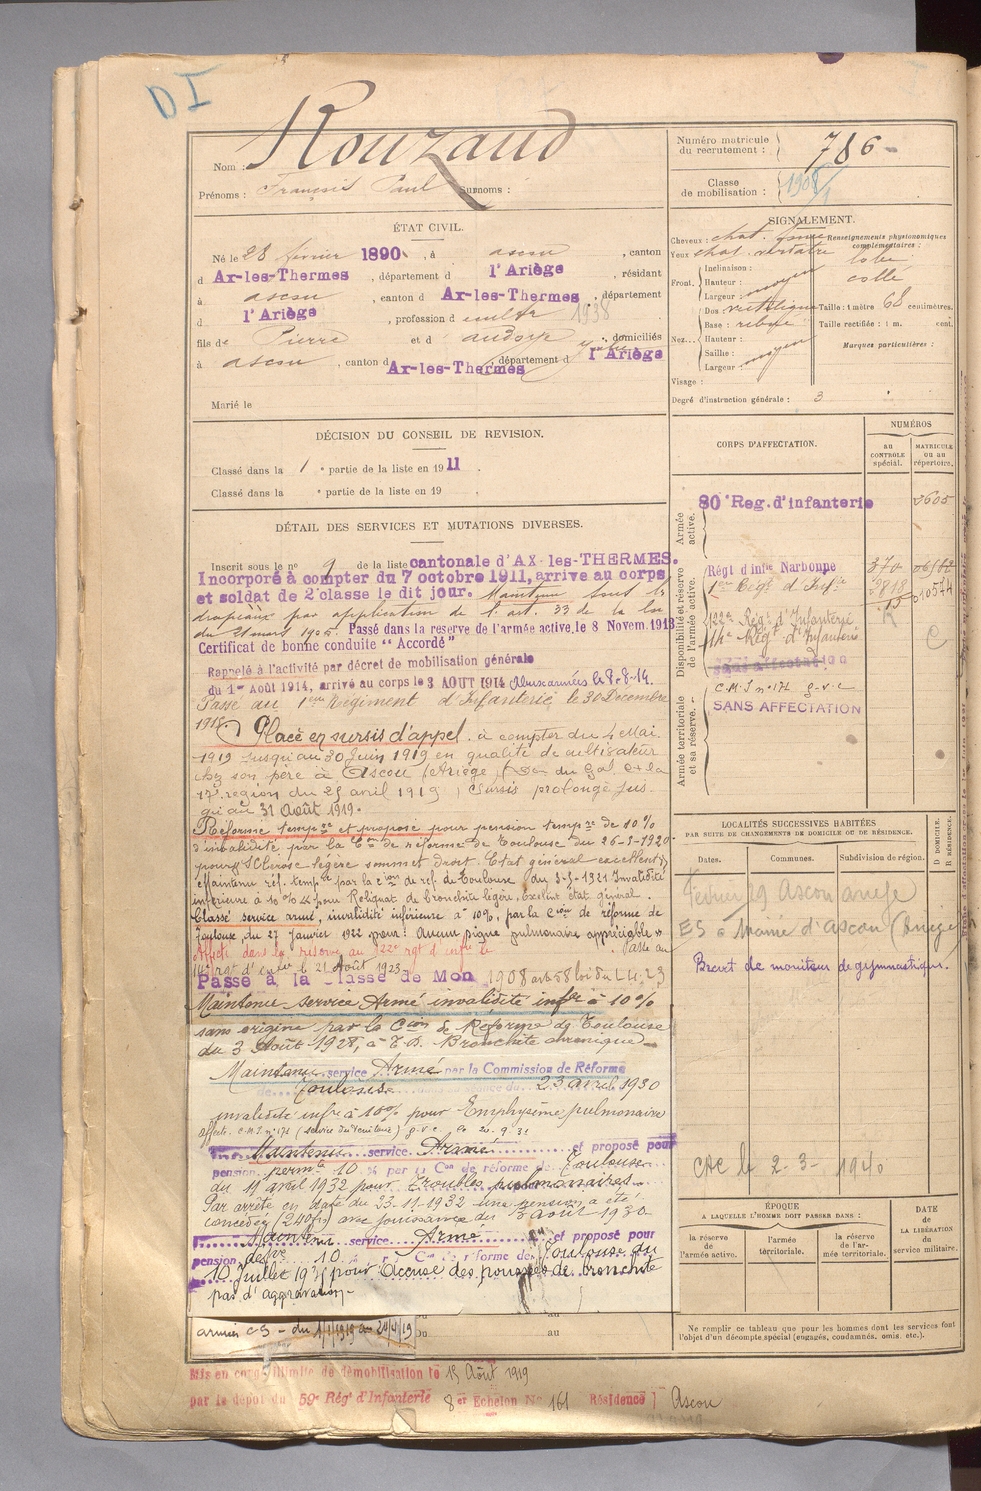 D I
Nom : Rouzaud
Prénoms : François Paul Surnoms :
Numéro matricule du recrutement : 786
Classe de mobilisation : 1908/1
ÉTAT CIVIL.
Né le 28 février 1890, à ascou, canton
d Ax-les-Thermes, département d l'Ariège, résidant
à ascou, canton d Ax-les-Thermes, département
d l'Ariège, profession d 1938
fils de Pierre et d , domiciliés
à ascou, canton d Ax-les-Thermes, département d l'Ariège
Marié le
SIGNALEMENT.
Cheveux : chat.
Yeux chat. verdâtre
Renseignements physionomiques complémentaires :
lobe
collé
Front. Inclinaison :
Hauteur :
Largeur : moyen
Nez... Dos rectiligne
Base : relevé
Hauteur :
Saillie :
Largeur : moyen
Taille : 1 mètre 68 centimètres.
Taille rectifiée : 1 m. cent.
Marques particulières :
Visage :
Degré d'instruction générale : 3
DÉCISION DU CONSEIL DE REVISION.
Classé dans la 1 e partie de la liste en 1911.
Classé dans la e partie de la liste en 19 .
DÉTAIL DES SERVICES ET MUTATIONS DIVERSES.
Inscrit sous le n° 9 de la liste cantonale d'AX-les-THERMES.
Incorporé à compter du 7 octobre 1911, arrive au corps
et soldat de 2e classe le dit jour. Maintenu sous les
drapeaux par application de l'art. 33 de la loi
du 21 mars 1905. Passé dans la réserve de l'armée active, le 8 Novem. 1913
Certificat de bonne conduite "Accordé"
Rappelé à l'activité par décret de mobilisation générale
du 1er Août 1914, arrivé au corps le 3 AOUT 1914 Aux armées le 8-8-14.
Passé au 1er Régiment d'Infanterie le 30 Décembre
1918. Placé en sursis d'appel à compter du 4 Mai
1919 jusqu'au 30 Juin 1919 en qualité de cultivateur
chez son père à Ascou (Ariège)
17e région du 25 avril 1919) Sursis prolongé jus-
qu'au 31 Août 1919.
Réformé tempre et proposé pour pension tempre de 10%
d'invalidité par la Con de réforme de Toulouse du 26-3-1920
pour Sclérose légère sommet droit. Etat général excellent
Maintenu réf. tempre par la Cion de réf. de Toulouse du 3-5-1921 Invalidité
inférieure à 10% pour Reliquat de bronchite légère, Excellent état général.
Classé service armé, invalidité inférieure à 10%, par la Cion de réforme de
Toulouse du 27 Janvier 1922 pour : Aucun signe pulmonaire appréciable
Affecté dans la réserve au 122e rgt d'infie Passé au
14e rgt d'infie le 21 Août 1923
Passé à la Classe de Mon 1908 art 58 loi du 1.4.23
Maintenu service Armé invalidité infre à 10%
sans origine par la Cion de Réforme de Toulouse
du 3 Août 1928, à T.D. Bronchite chronique
Maintenu service Armé par la Commission de Réforme
de Toulouse séance du 23 avril 1930
invalidité infre à 10% pour Emphysème pulmonaire
Affecté C.M.I n° 171 (service du territoire) g.v.c. le 20.9.31
Maintenu service Armé et proposé pour
pension permte 10 % par la Con de réforme de Toulouse
du 11 avril 1932 pour Troubles pulmonaires
Par arrêté en date du 23-11-1932 une pension a été
concédée (240 frs) avec jouissance du 3 août 1930
Maintenu service Armé et proposé pour
pension 10 % Con de réforme de Toulouse du
10 Juillet pour Accuse des poussées de bronchite
pas d'aggravation
armées CS - du 1/1/1919 au 20/4/19
Du au
Du au
Mis en congé illimité de démobilisation le 15 Août 1919
par le dépôt du 59e Régt d'Infanterie 8er Echelon N° 161 Résidence Ascou
CORPS D'AFFECTATION.
NUMÉROS
au CONTROLE spécial.
MATRICULE ou au répertoire.
Armée active.
80e Reg. d'infanterie
Disponibilité et réserve de l'armée active.
Régt d'infie Narbonne
1er Régt d'Infie
122e Régt d'Infanterie
14e Régt d'Infanterie
Armée territoriale et sa réserve.
C.M.I n° 171 g.v.c
SANS AFFECTATION
LOCALITÉS SUCCESSIVES HABITÉES
PAR SUITE DE CHANGEMENTS DE DOMICILE OU DE RÉSIDENCE.
Dates.
Communes.
Subdivision de région.
D. DOMICILE. R. RÉSIDENCE.
Février 29 Ascou Ariège
ES à Mairie d'Ascou (Ariège)
Brevet de moniteur de gymnastique.
CAC le 2-3-1940
ÉPOQUE
A LAQUELLE L'HOMME DOIT PASSER DANS :
la réserve de l'armée active.
l'armée territoriale.
la réserve de l'armée territoriale.
DATE de LA LIBÉRATION du service militaire.
Ne remplir ce tableau que pour les hommes dont les services font
l'objet d'un décompte spécial (engagés, condamnés, omis, etc.).